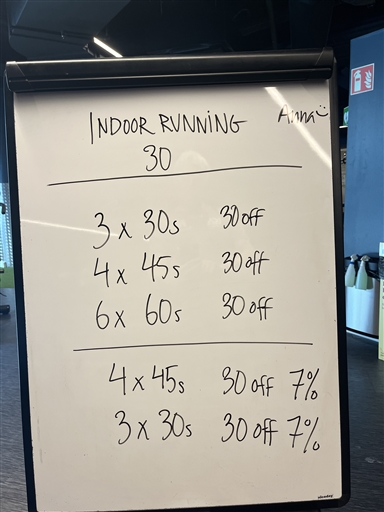 INDOOR RUNNING Anna
30
3 x 30s 30 off
4 x 45s 30 off
6 x 60s 30 off
4 x 45s 30 off 7%
3 x 30s 30 off 7%